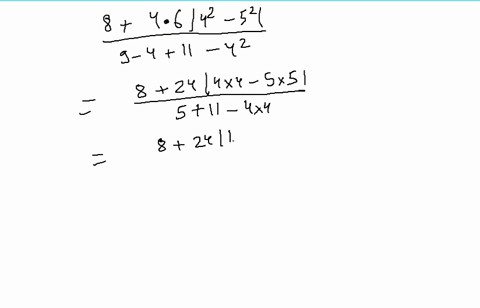 8 + 4•6|4² - 5²|
9-4+11-4²
= 8 + 24|4×4 - 5×5|
5+11-4×4
= 8 + 24|1